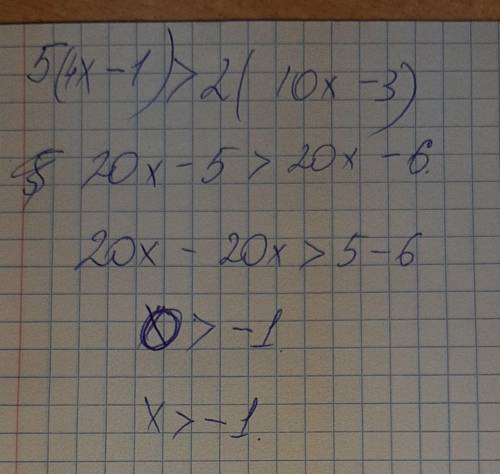 5(4x-1)>2(10x-3)
20x-5>20x-6.
20x-20x>5-6
0>-1.
x>-1.